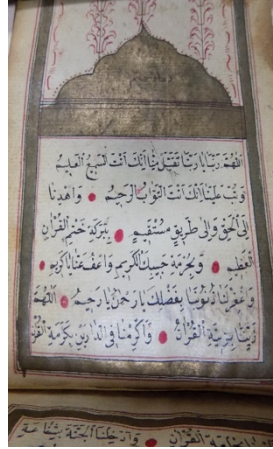 اَللّٰهُمَّ رَبَّنَا يَا رَبَّنَا تَقَبَّلْ مِنَّا اِنَّكَ اَنْتَ السَّمِيعُ الْعَلِيمُ
وَتُبْ عَلَيْنَا اِنَّكَ اَنْتَ التَّوَّابُ الرَّحِيمُ وَاهْدِنَا
اِلَى الْحَقِّ وَاِلَى طَرِيقٍ مُسْتَقِيمٍ بِبَرَكَةِ خَتْمِ الْقُرْاٰنِ
الْعَظِيمِ وَبِحُرْمَةِ حَبِيبِكَ الْكَرِيمِ وَاعْفُ عَنَّا يَا كَرِيمُ
وَاغْفِرْ لَنَا ذُنُوبَنَا بِفَضْلِكَ يَا رَحْمٰنُ يَا رَحِيمُ اَللّٰهُمَّ
زَيِّنَّا بِزِينَةِ الْقُرْاٰنِ وَاَكْرِمْنَا فِي الدَّارَيْنِ بِكَرَامَةِ الْقُرْاٰنِ
الْقُرْاٰنِ وَاَدْخِلْنَا الْجَنَّةَ بِشَفَاعَةِ